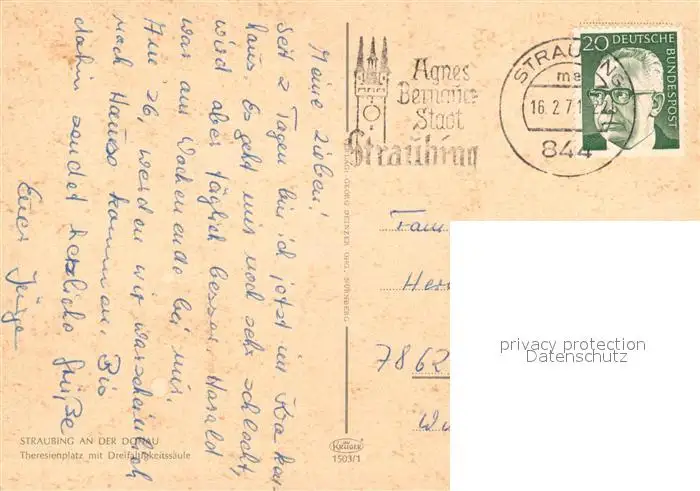 Meine Lieben!
Seit 2 Tagen bin ich jetzt im Kranken-
haus. Es geht mir noch sehr schlecht,
wird aber täglich besser. Harald
war am Wochenende bei mir.
Am 26. werden wir warscheinlich
nach Hause kommen. Bis
dahin sendet herzliche Grüße
Euer
STRAUBING AN DER DONAU
Theresienplatz mit Dreifaltigkeitssäule
VERLAG: GEORG DEINZER OHG, NÜRNBERG
KRÜGER
1503/1
Agnes
Bernauer
Stadt
Straubing
STRAUBING
16.2.71
844
20 DEUTSCHE
BUNDESPOST
Fam
Her
7862
privacy protection
Datenschutz